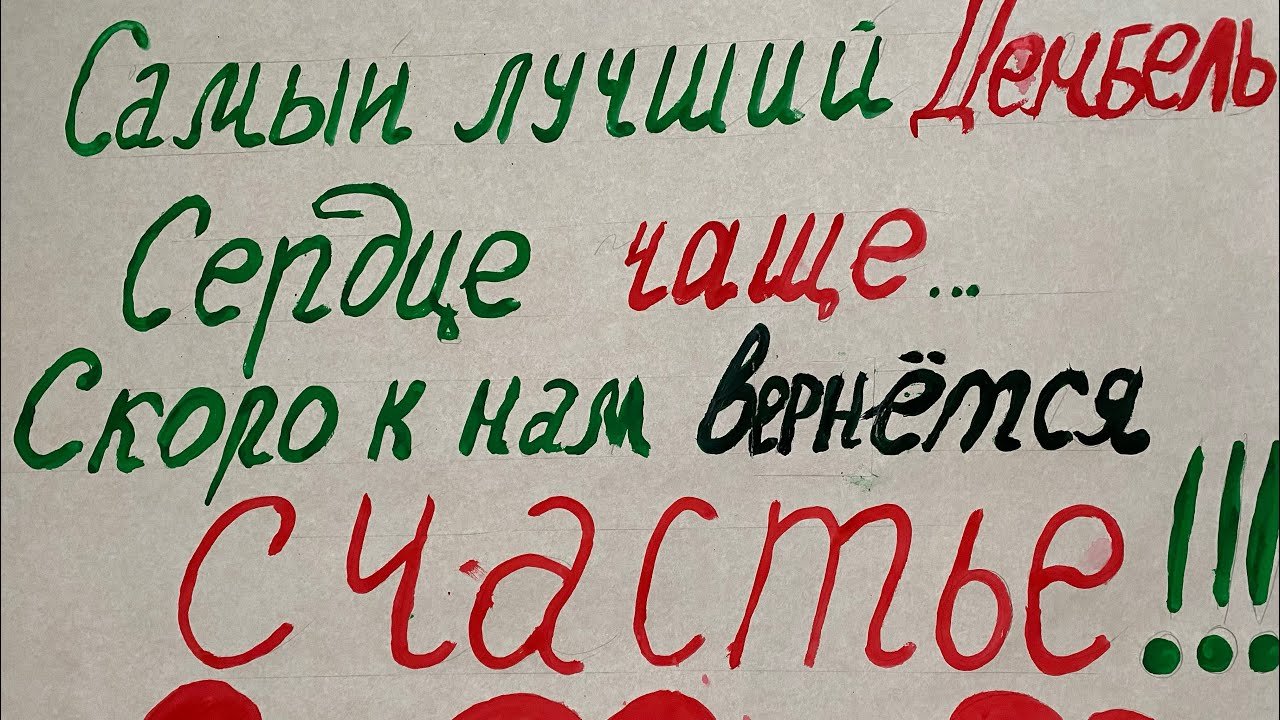 Самын лучший Дембель
Сердце чаще...
Скоро к нам вернётся
счастье!!!